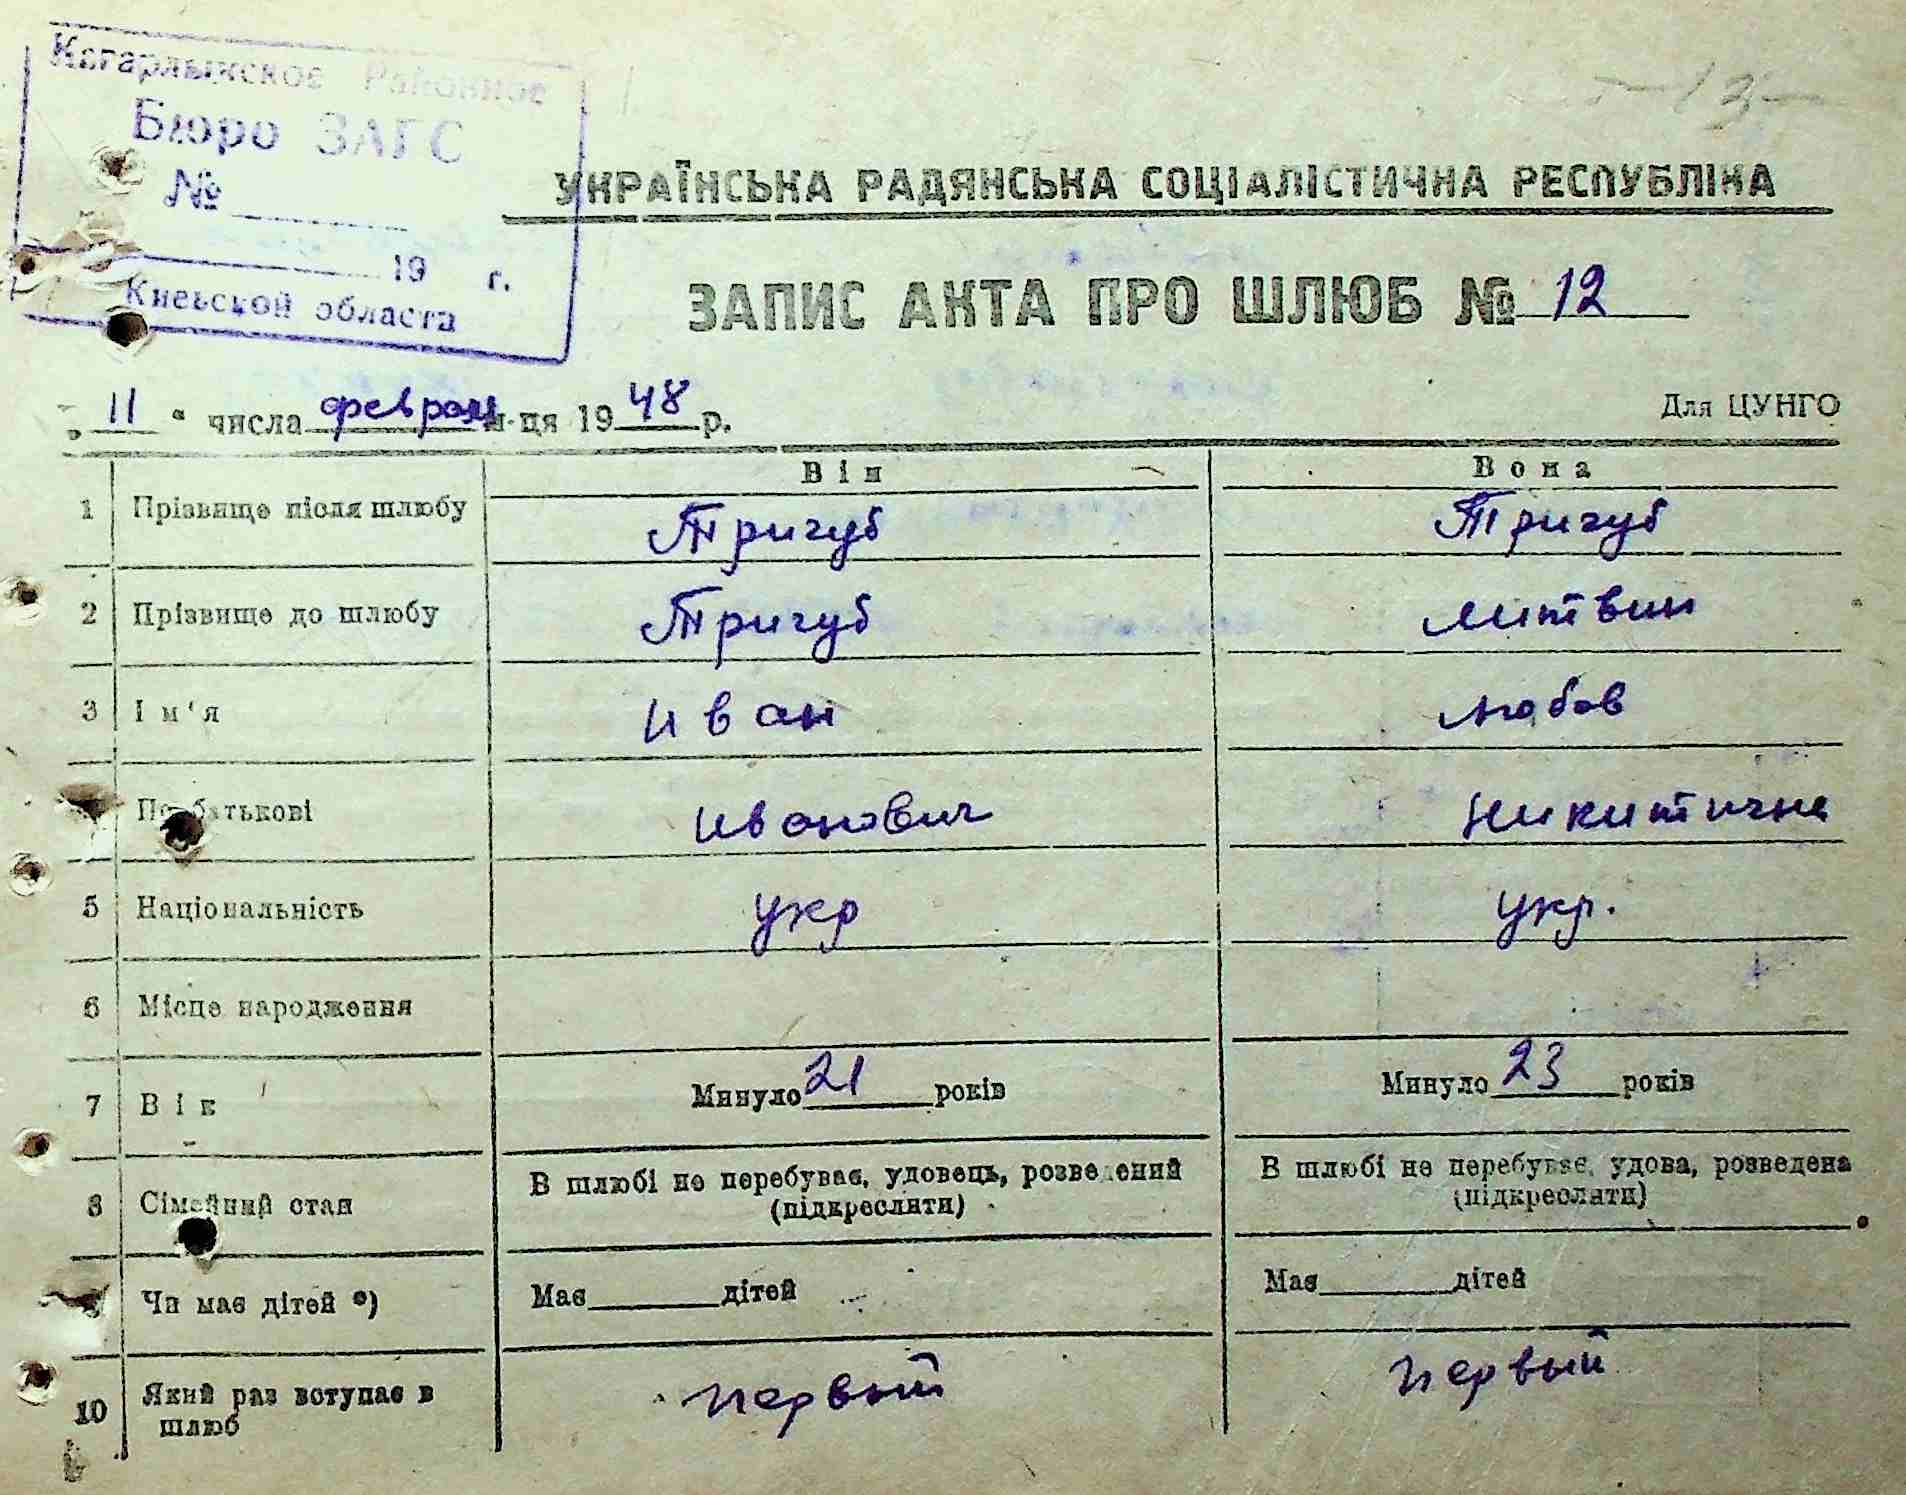 Кагарлыкское Районное
Бюро ЗАГС
№
19 г.
Киевской области
-13-
УКРАЇНСЬКА РАДЯНСЬКА СОЦІАЛІСТИЧНА РЕСПУБЛІКА
ЗАПИС АКТА ПРО ШЛЮБ № 12
„ 11 “ числа февраля м-ця 1948 р.
Для ЦУНГО
Він Вона
1 Прізвище після шлюбу Тригуб Тригуб
2 Прізвище до шлюбу Тригуб Литвин
3 Ім'я Иван Любов
По батькові Иванович Никитична
5 Національність укр укр.
6 Місце народження
7 Вік Минуло 21 років Минуло 23 років
8 Сімейний стан В шлюбі не перебуває, удовець, розведений (підкреслити) В шлюбі не перебуває, удова, розведена (підкреслити)
9 Чи має дітей *) Має дітей Має дітей
10 Який раз вступає в шлюб первый первый